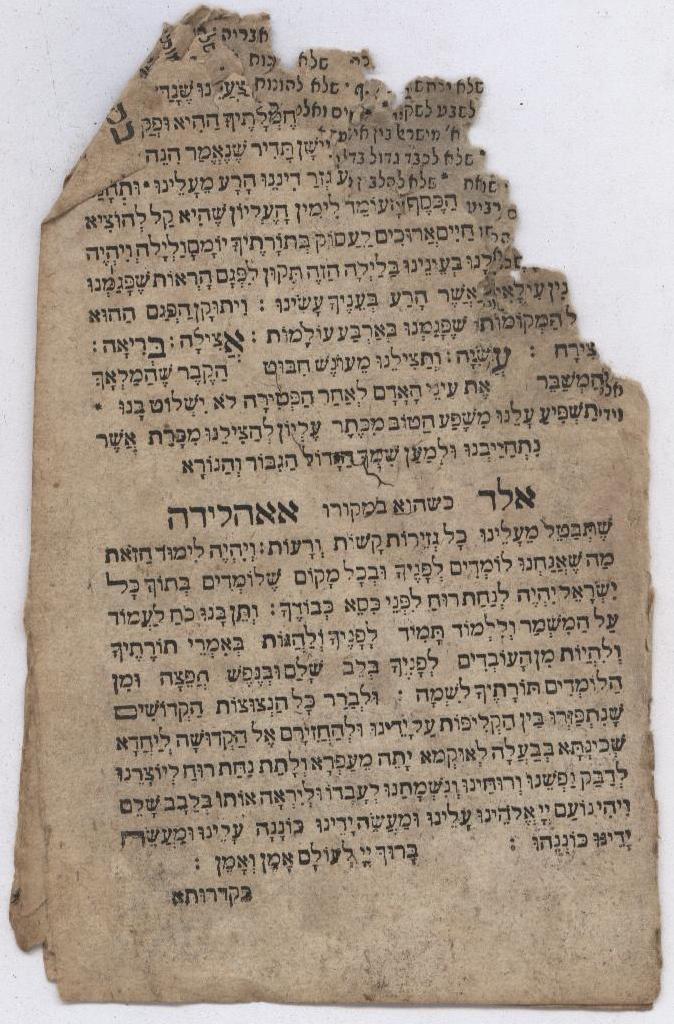 אצריה
שלא כוח
שלא יכחש שלא להונות צער נו שֶׁנָּדִי
לשבט לשקר חֶמְלָתֶיךָ הַהִיא וּפְקֹ
יִישָׁן תָּדִיר שֶׁנֶּאֱמַר הִנֵּה
שלא לכבד גדול
גְּזַר דִּינֵנוּ הָרָע מֵעָלֵינוּ
הַכִּסֵּף הָעוֹמֵד לִימִין הָעֶלְיוֹן שֶׁהִיא קַל לְהוֹצִיא
חַיִּים אֲרוּכִים לַעֲסוֹק בְּתוֹרָתֶיךָ יוֹמָם וָלַיְלָה וְיִהְיֶה
בְּעֵינֵינוּ בַּלַּיְלָה הַזֶּה תִּקּוּן לִפְגַם הָרְאוּת שֶׁפָּגַמְנוּ
אֲשֶׁר הָרַע בְּעֵנֶיךָ עָשִׂינוּ : וִיתוּקַן הַפְּגַם הַהוּא
הַמְּקוֹמוֹת שֶׁפָּגַמְנוּ בְּאַרְבַּע עוֹלָמוֹת : אֲצִילָה : בְּרִיאָה :
צִירָה : עֲשִׂיָּה : וְתַצִּילֵנוּ מֵעוֹנֶשׁ חִבּוּט הַקֶּבֶר שֶׁהַמַּלְאָךְ
הַמְשַׁבֵּר אֶת עֵינֵי הָאָדָם לְאַחַר הַפְּטִירָה לֹא יִשְׁלוֹט בָּנוּ •
תַּשְׁפִּיעַ עָלֵנוּ מִשֶּׁפַע הַטּוֹב מִכֶּתֶר עֶלְיוֹן לְהַצִּילֵנוּ מִכָּרֵת אֲשֶׁר
נִתְחַיַּיבְנוּ וּלְמַעַן שִׁמְךָ הַגָּדוֹל הַגִּבּוֹר וְהַנּוֹרָא
אלד כשהוא במקורו אאהלירה
שֶׁתְּבַטֵּל מֵעָלֵינוּ כָּל גְּזֵירוֹת קָשׁוֹת וְרָעוֹת : וְיִהְיֶה לִימּוּד הַזֹּאת
מַה שֶׁאֲנַחְנוּ לוֹמְדִים לְפָנֶיךָ וּבְכָל מָקוֹם שֶׁלּוֹמְדִים בְּתוֹךְ כָּל
יִשְׂרָאֵל יִהְיֶה לְנַחַת רוּחַ לִפְנֵי כִּסֵּא כְּבוֹדֶךָ : וְתֵן בָּנוּ כֹּחַ לַעֲמוֹד
עַל הַמִּשְׁמָר וְלִלְמוֹד תָּמִיד לְפָנֶיךָ וְלַהֲגוֹת בְּאִמְרֵי תוֹרָתֶיךָ
וְלִהְיוֹת מִן הָעוֹבְדִים לְפָנֶיךָ בְּלֵב שָׁלֵם וּבְנֶפֶשׁ חֲפֵצָה וּמִן
הַלּוֹמְדִים תּוֹרָתֶיךָ לִשְׁמָהּ : וּלְבָרֵר כָּל הַנִּצוֹצוֹת הַקְּדוֹשִׁים
שֶׁנִּתְפַּזְּרוּ בֵּין הַקְּלִיפּוֹת עַל יָדֵינוּ וּלְהַחֲזִירָם אֶל הַקְּדוּשָׁה לְיַחֲדָא
שְׁכִינְתָּא בְּבַעֲלָהּ לְאוּקְמָא יָתָהּ מֵעַפְרָא וְלָתֵת נַחַת רוּחַ לְיוֹצְרֵנוּ
לְדַבֵּק נַפְשֵׁנוּ וְרוּחֵינוּ וְנִשְׁמָתֵנוּ לְעָבְדוֹ וּלְיִרְאָה אוֹתוֹ בְּלֵבָב שָׁלֵם
וִיהִי נוֹעַם יְיָ אֱלֹהֵינוּ עָלֵינוּ וּמַעֲשֵׂה יָדֵינוּ כּוֹנְנָה עָלֵינוּ וּמַעֲשֵׂה
יָדֵינוּ כּוֹנְנֵהוּ : בָּרוּךְ יְיָ לְעוֹלָם אָמֵן וְאָמֵן :
בקדרותא